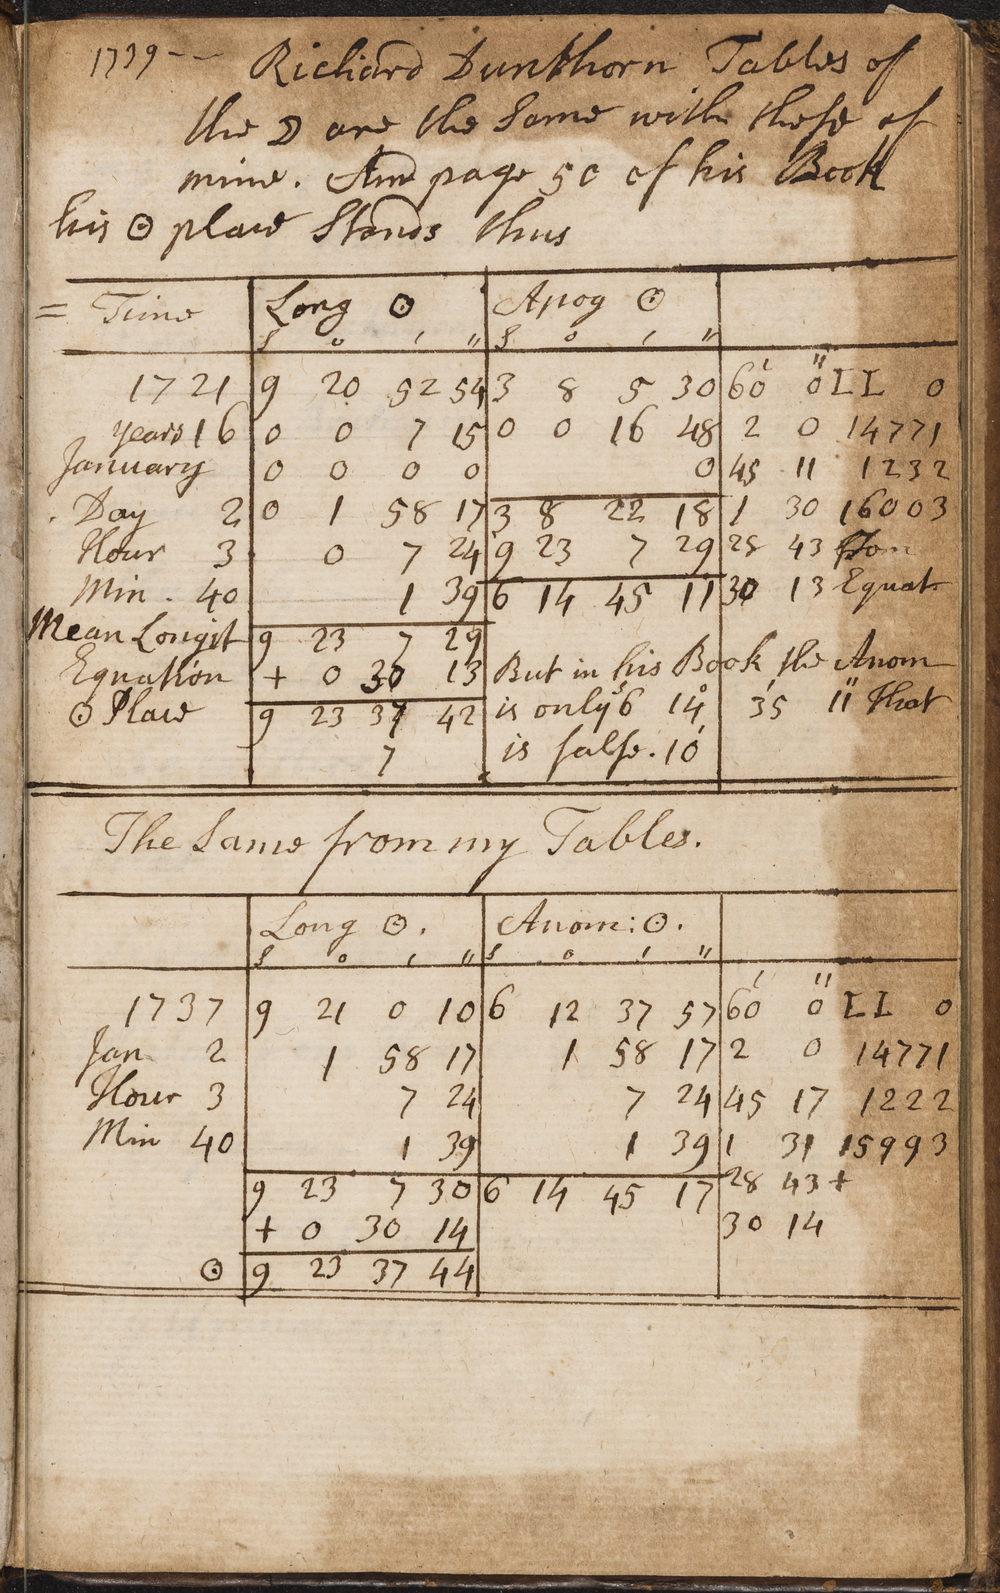 1739 -- Richard Dunthorn Tables of
the ☽ are the Same with these of
mine. And page 50 of his Book
his ☉ place Stands thus
= Time Long ☉ Apog ☉
S ° ′ ″ S ° ′ ″
1721 9 20 52 54 3 8 5 30 60′ 0″ LL 0
years 16 0 0 7 15 0 0 16 48 2 0 14771
January 0 0 0 0 0 45 11 1232
. Day 2 0 1 58 17 3 8 22 18 1 30 16003
Hour 3 0 7 24 9 23 7 29 28 43
Min . 40 1 39 6 14 45 11 30 13 Equat
Mean Longit 9 23 7 29
Equation + 0 30 13 But in his Book the Anom
☉ Place 9 23 37 42 is only 6s 14° 35′ 11″ that
7 is false. 10′
The Same from my Tables.
Long ☉. Anom: ☉.
S ° ′ ″ S ° ′ ″
1737 9 21 0 10 6 12 37 57 60′ 0″ LL 0
Jan 2 1 58 17 1 58 17 2 0 14771
Hour 3 7 24 7 24 45 17 1222
Min 40 1 39 1 39 1 31 15993
9 23 7 30 6 14 45 17 28 43 +
+ 0 30 14 30 14
☉ 9 23 37 44